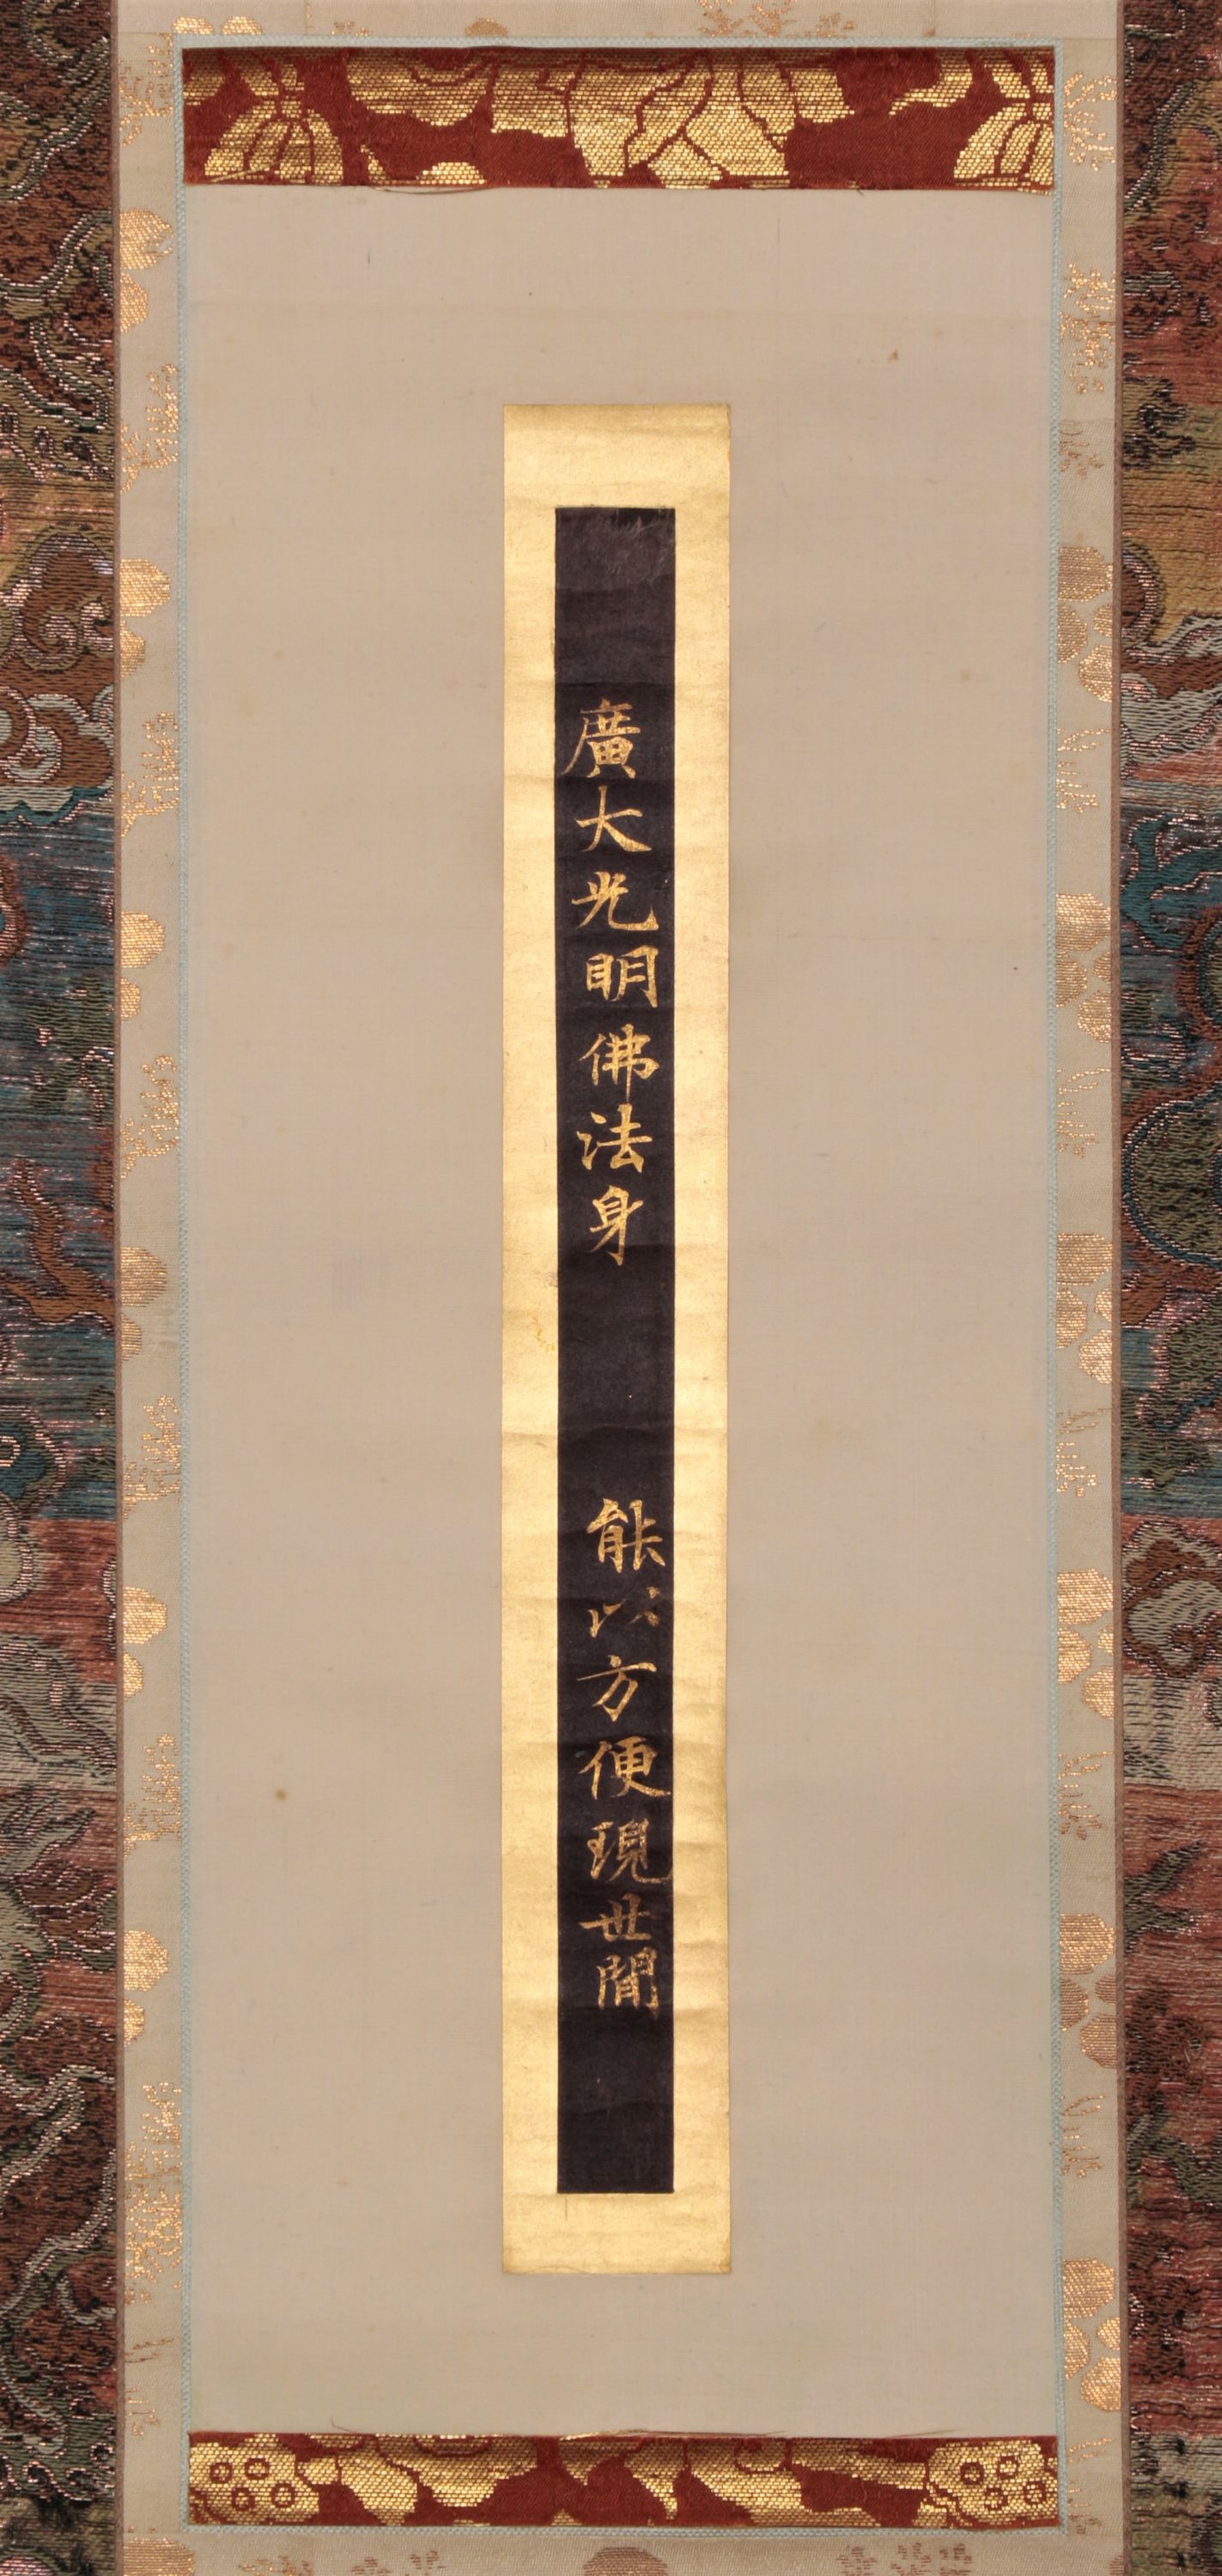 廣大光明佛法身　能以方便現世間